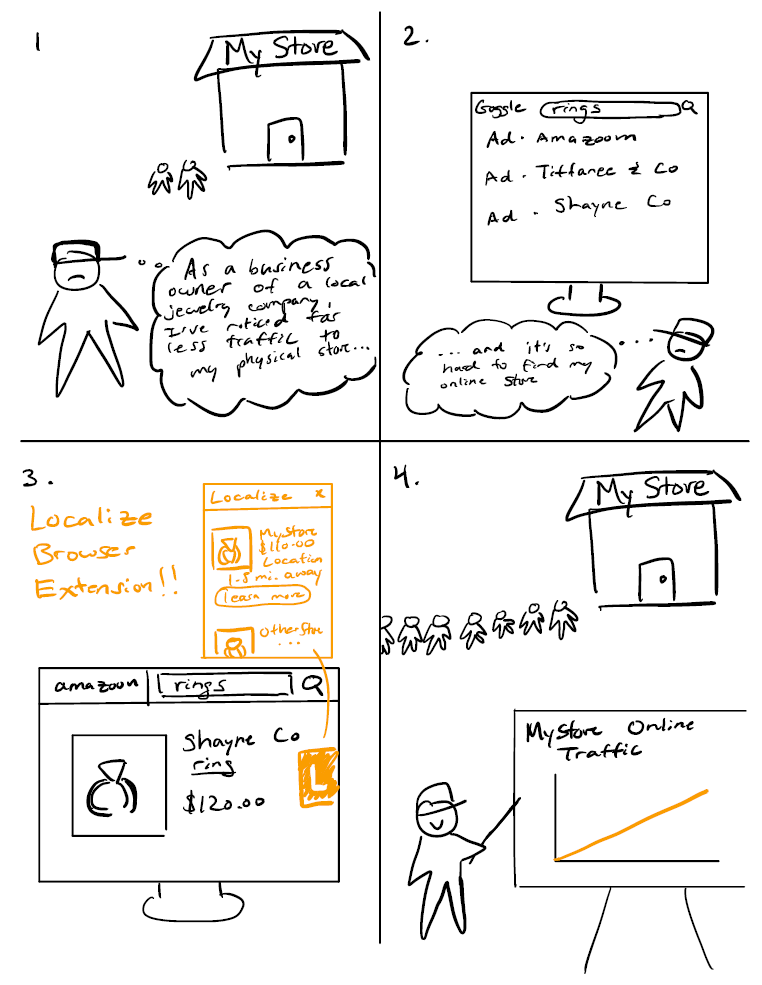 1
My Store
As a business
owner of a local
jewelry company,
I've noticed far
less traffic to
my physical store...
2.
Goggle rings
Ad · Amazoom
Ad · Tiffanee & Co
Ad · Shayne Co
... and it's so
hard to find my
online store
3.
Localize
Browser
Extension!!
Localize x
My Store
$110.00
Location
1.5 mi. away
learn more
Other Store
...
amazoon rings
Shayne Co
ring
$120.00
L
4.
My Store
My Store Online
Traffic